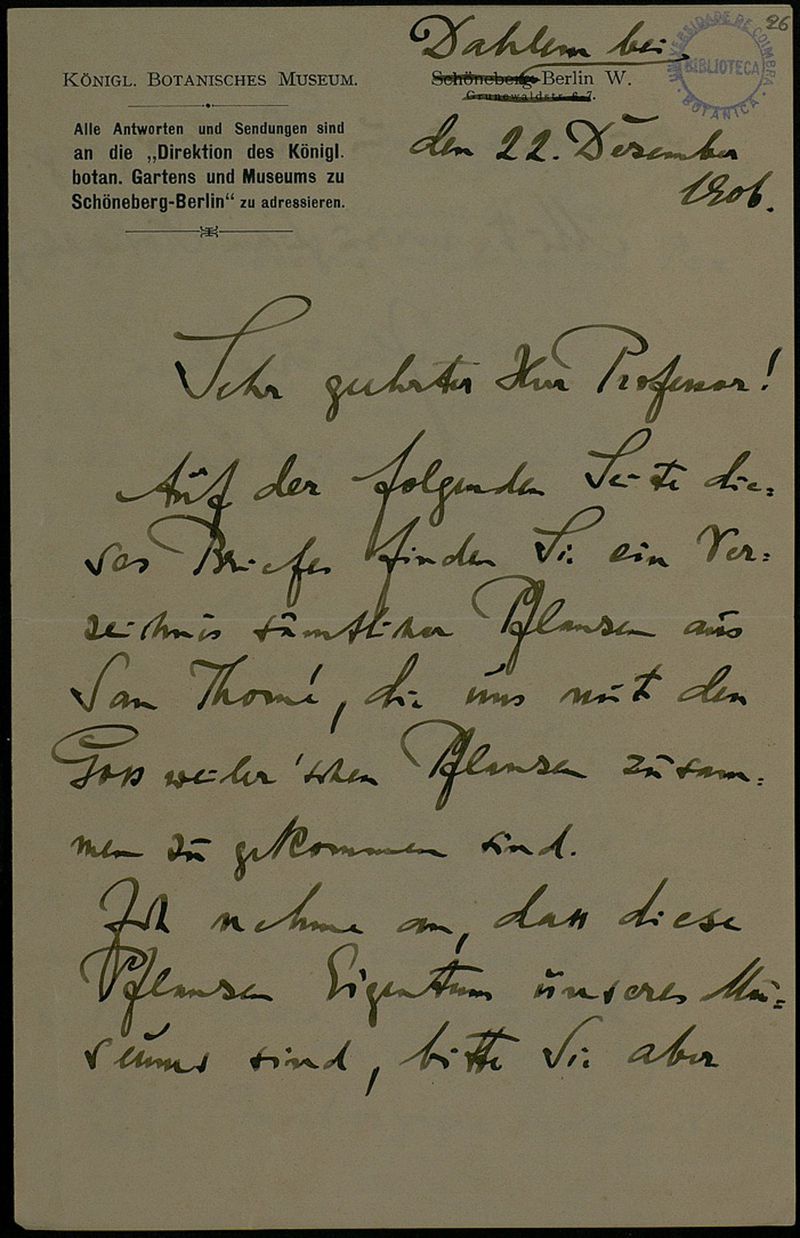 26
Dahlem bei
KÖNIGL. BOTANISCHES MUSEUM.
Schöneberg-Berlin W.
Grunewaldstr. 6-7.
UNIVERSIDADE DE COIMBRA
BIBLIOTECA
BOTANICA
Alle Antworten und Sendungen sind
an die „Direktion des Königl.
botan. Gartens und Museums zu
Schöneberg-Berlin“ zu adressieren.
den 22. Dezember
1906.
Sehr geehrter Herr Professor!
Auf der folgenden Seite die=
ses Briefes finden Sie ein Ver=
zeichnis sämtlicher Pflanzen aus
San Thomé, die uns mit den
Gossweiler'schen Pflanzen zusam=
men zu gekommen sind.
Ich nehme an, dass diese
Pflanzen Eigentum unseres Mu=
seums sind, bitte Sie aber